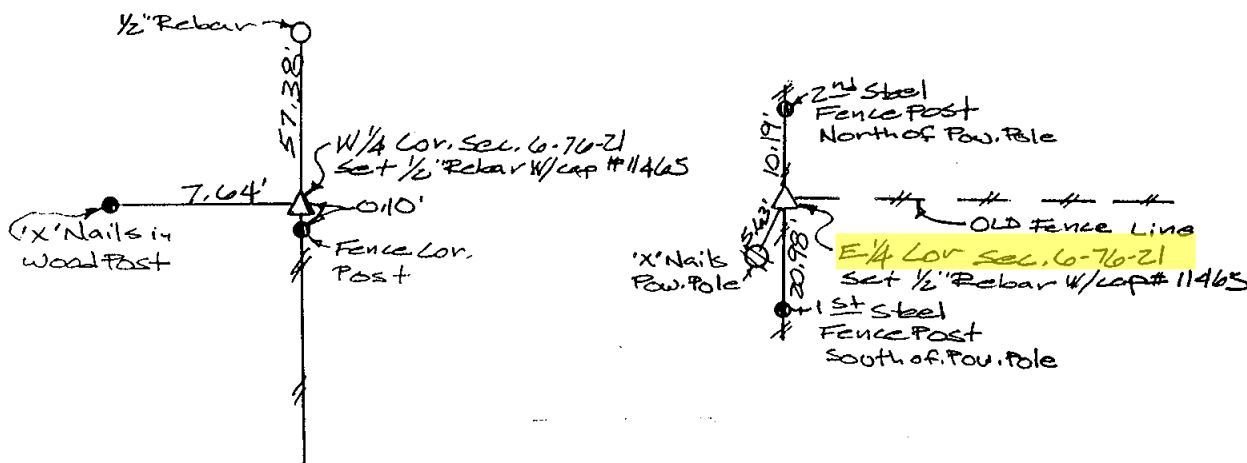 1/2" Rebar
57.38'
W 1/4 Cor. Sec. 6-76-21
Set 1/2" Rebar W/cap # 11465
7.64'
0.10'
'X' Nails in
Wood Post
Fence Cor.
Post
2nd Steel
Fence Post
North of Pow. Pole
10.19'
OLD Fence Line
5.63'
'X' Nails
Pow. Pole
20.98'
E 1/4 Cor Sec. 6-76-21
Set 1/2" Rebar W/cap # 11465
1st Steel
Fence Post
South of. Pow. Pole